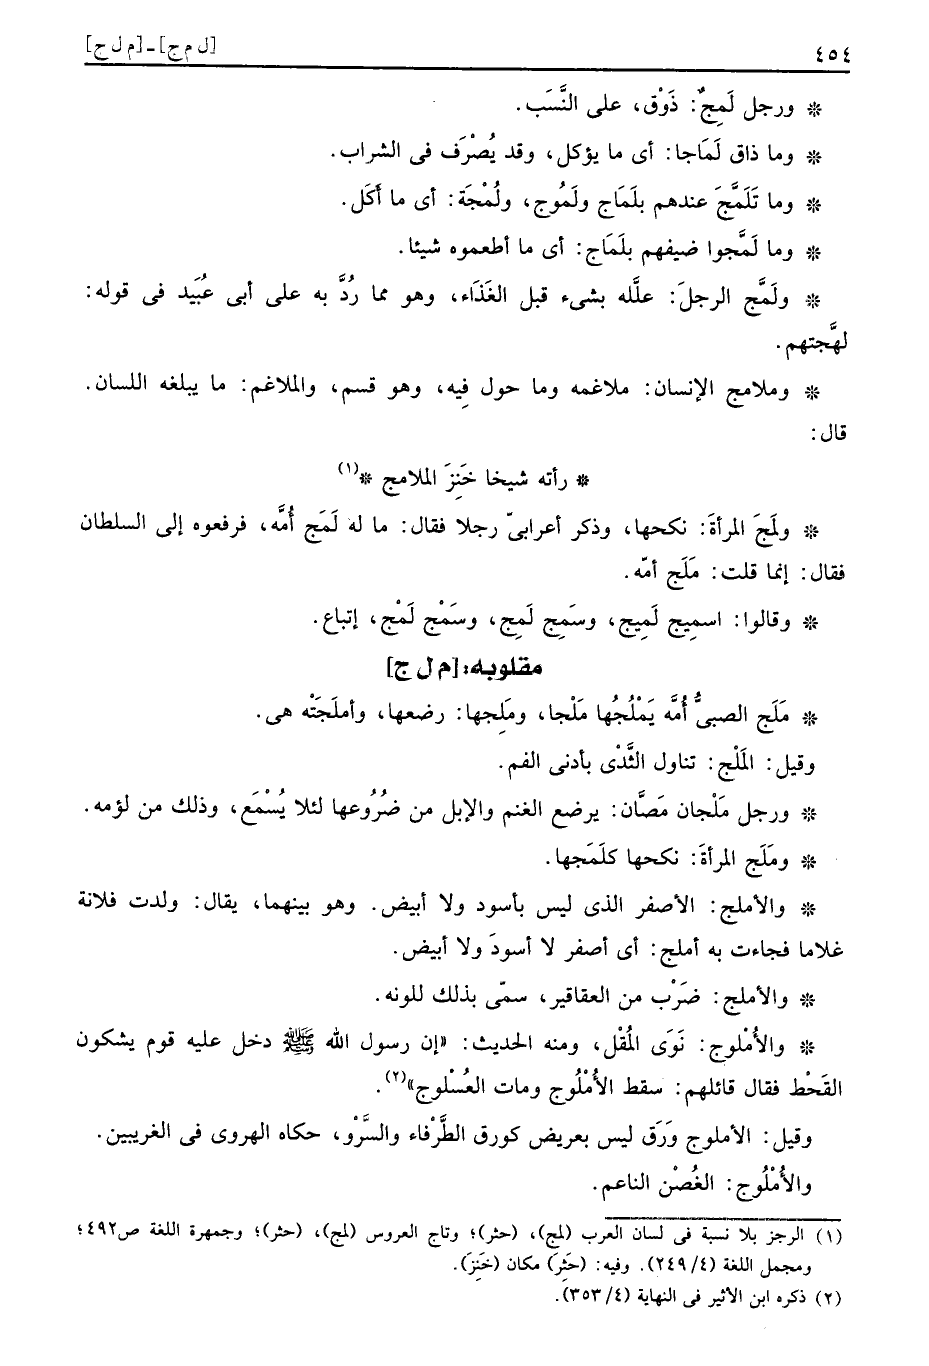 ٤٥٤
[ل م ج] - [م ل ج]
* ورجل لَمِجٌ: ذَوْق، على النَّسَب.
* وما ذاق لَمَاجا: أى ما يؤكل، وقد يُصْرَف فى الشراب.
* وما تَلَمَّجَ عندهم بلَمَاج ولَمُوج، ولُمْجَة: أى ما أَكَل.
* وما لَمَّجوا ضيفهم بلَمَاج: أى ما أطعموه شيئا.
* ولَمَّج الرجلَ: علَّله بشىء قبل الغَذَاء، وهو مما رُدَّ به على أبى عُبَيد فى قوله:
لهَّجتهم.
* وملامج الإنسان: ملاغمه وما حول فِيه، وهو قسم، والملاغم: ما يبلغه اللسان.
قال:
* رأته شيخا خَنِزَ الملامج *(١)
* ولَمَجَ المرأةَ: نكحها، وذكر أعرابىّ رجلا فقال: ما له لَمَج أُمَّه، فرفعوه إلى السلطان
فقال: إنما قلت: مَلَج أمّه.
* وقالوا: اسمِيج لَمِيج، وسَمِج لَمِج، وسَمْج لَمْج، إتباع.
مقلوبه: [م ل ج]
* مَلَج الصبىُّ أُمَّه يَمْلُجُها مَلْجا، ومَلِجها: رضعها، وأملَجَتْه هى.
وقيل: المَلْج: تناول الثَّدْى بأدنى الفم.
* ورجل مَلْجان مَصَّان: يرضع الغنم والإبل من ضُرُوعها لئلا يُسْمَع، وذلك من لؤمه.
* ومَلَج المرأةَ: نكحها كلَمَجها.
* والأملج: الأصفر الذى ليس بأسود ولا أبيض. وهو بينهما، يقال: ولدت فلانة
غلاما فجاءت به أملج: أى أصفر لا أسودَ ولا أبيض.
* والأملج: ضَرْب من العقاقير، سمّى بذلك للونه.
* والأُمْلوج: نَوَى المُقْل، ومنه الحديث: «إن رسول الله ﷺ دخل عليه قوم يشكون
القَحْط فقال قائلهم: سقط الأُمْلُوج ومات العُسْلوج»(٢).
وقيل: الأملوج وَرَق ليس بعريض كورق الطَّرْفاء والسَّرْو، حكاه الهروى فى الغريبين.
والأُمْلُوج: الغُصْن الناعم.
(١) الرجز بلا نسبة فى لسان العرب (لمج)، (حثر)؛ وتاج العروس (لمج)، (حثر)؛ وجمهرة اللغة ص٤٩٢؛
ومجمل اللغة (٢٤٩/٤). وفيه: (حَثِرَ) مكان (خَنِزَ).
(٢) ذكره ابن الأثير فى النهاية (٣٥٣/٤).